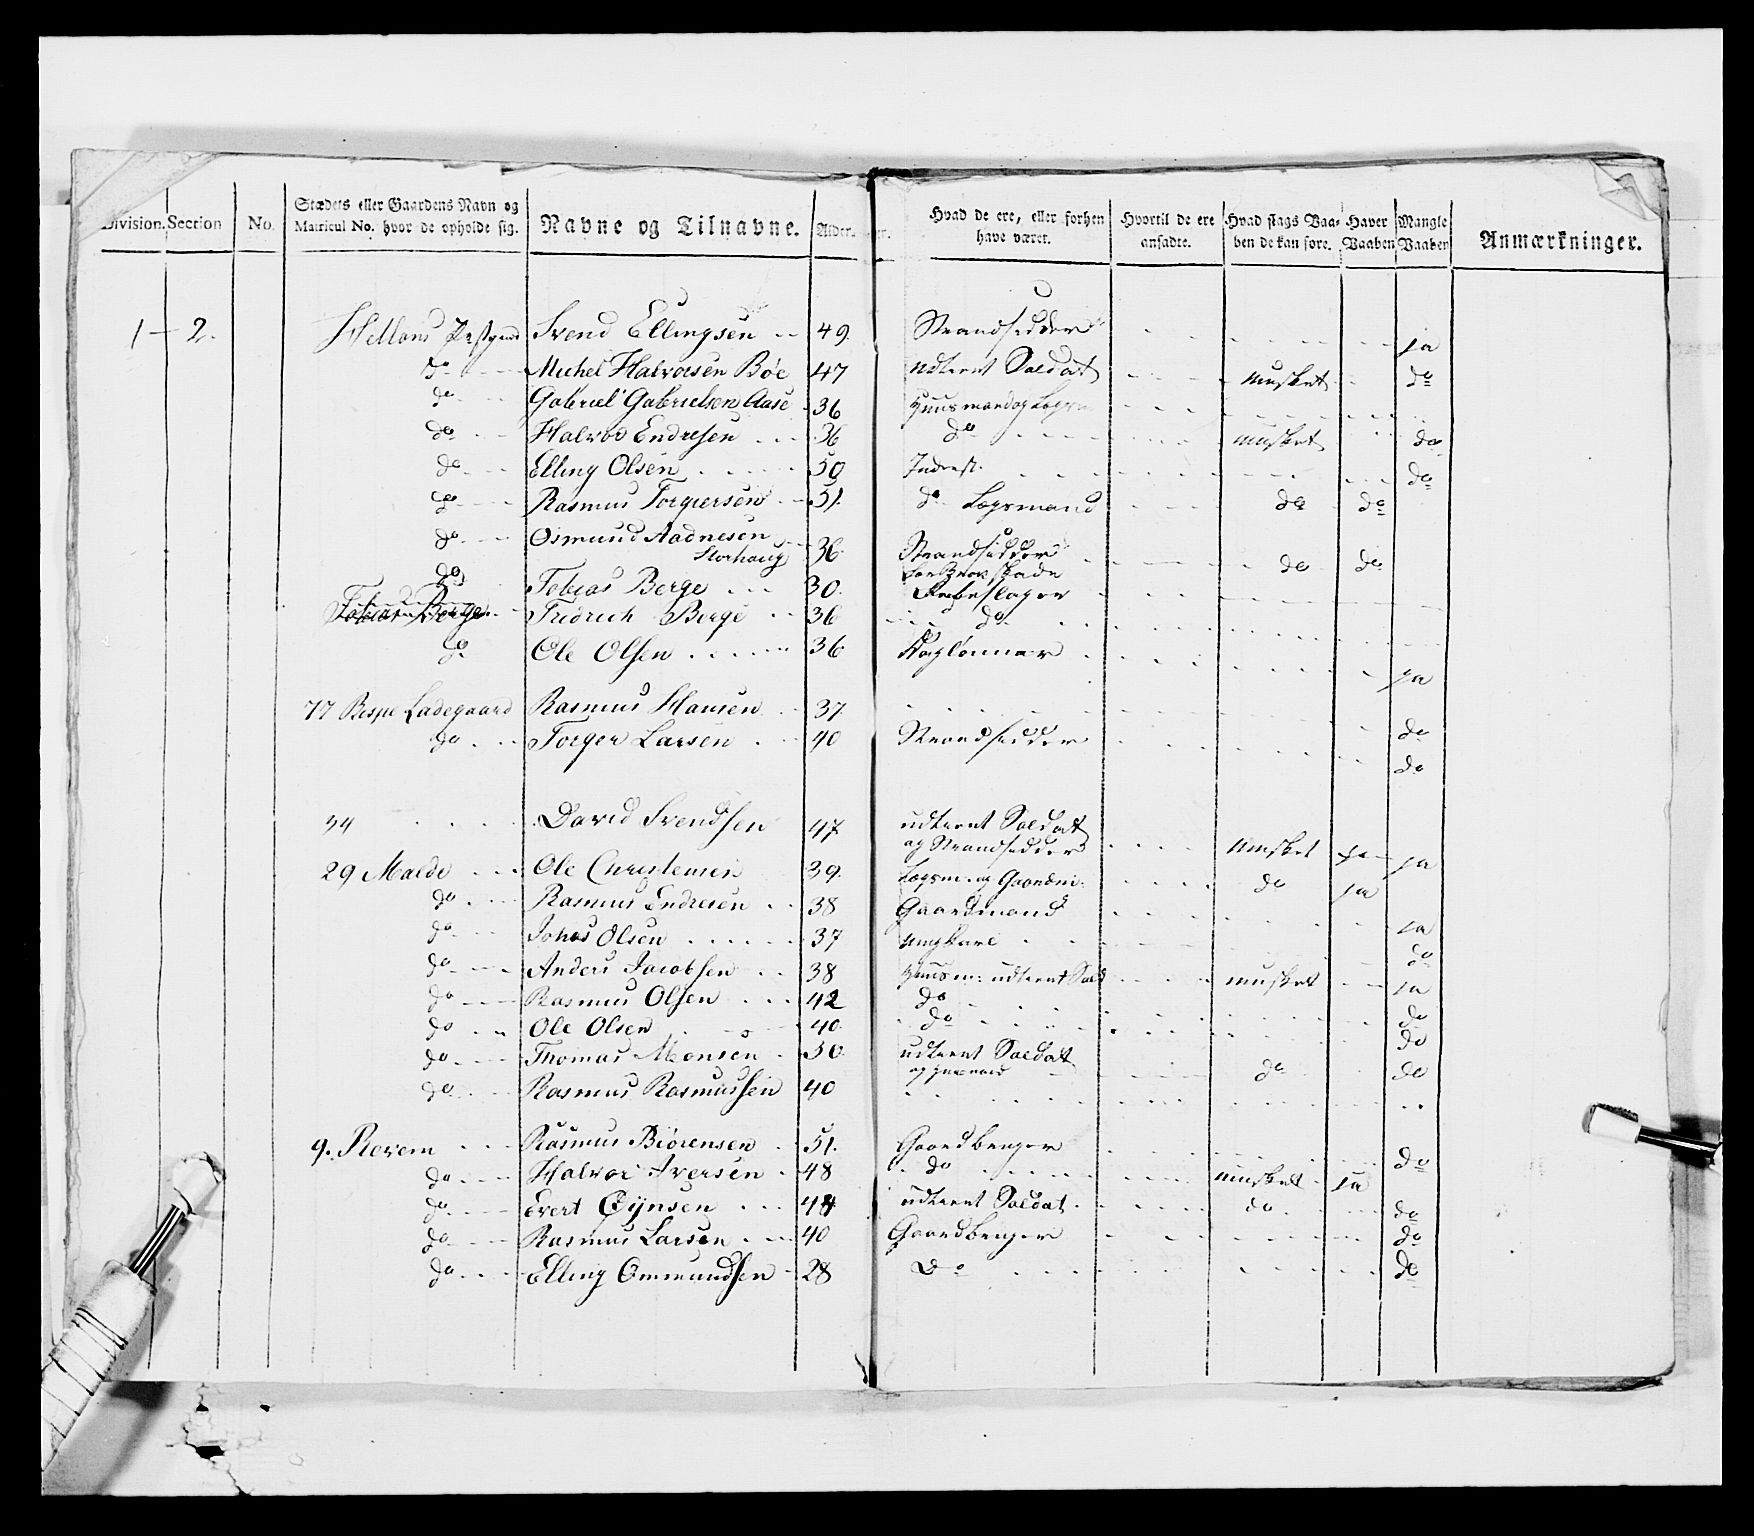 Division. Section No. Stædets eller Gaardens Navn og Matricul No. hvor de opholde sig. Navne og Tilnavne. Alder. Hvad de ere, eller forhen have været. Hvortil de ere ansadte. Hvad slags Vaaben de kan føre. Haver Vaaben Mangle Vaaben Anmærkninger.
1 - 2. Svend Ellingsen 49. Strandsidder ja
do Michel Halvorsen Bøe 47 udtient Soldat musket do
do Gabriel Gabrielsen Aase 36 Huusmand og
do Halvor Endresen 36 do musket do
do Elling Olsen 50 Inderst. do
do Rasmus Torgiersen 51. do Lægsmand do do
do Osmund Aadnesen
Storhaug 36. Strandsidder do do
do Tobias Berge 30.
Tobias Berge Fridrich Berge 36 do
do Ole Olsen 36 Daglønner ja
77 Bispe Ladegaard Rasmus Hansen 37. do
do Torger Larsen 40 Strandsidder do
34 David Svendsen 47 udtient Soldat
og Strandsidder musket ja
29 Malde Ole Christensen 39. Lægsm. og Gaardm. do ja
do Rasmus Endresen 38 Gaardmand ja
do Johas Olsen 37 ungkarl do
do Anders Jacobsen 38 Huusm: udtient Sold musket ja
do Rasmus Olsen 42 do do
do Ole Olsen 40. do do
do Thomas Monsen 50. udtient Soldat
og do do
do Rasmus Rasmussen 40
9. Revem Rasmus Biørensen 51. Gaardbruger do
do Halvor Iversen 48 do musket ja
do Evert Øÿnsen 44 udtient Soldat do do
do Rasmus Larsen 40 Gaardbruger do
do Elling Ommundsen 28 Do do